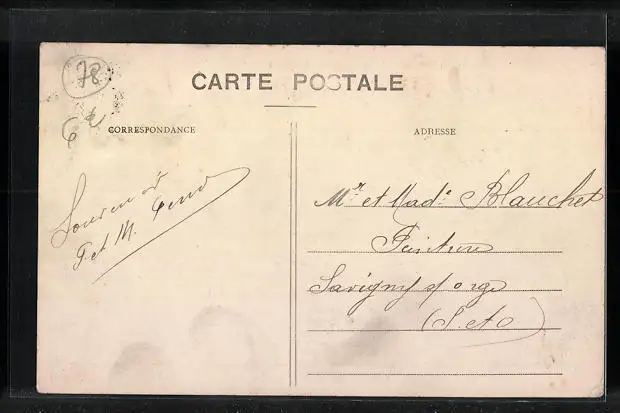 78
6 €
CARTE POSTALE
CORRESPONDANCE
ADRESSE
Souvenir
P et M.
Mr. et Made. Blanchet
Peinture
Savigny s/ orge
(S. et O)